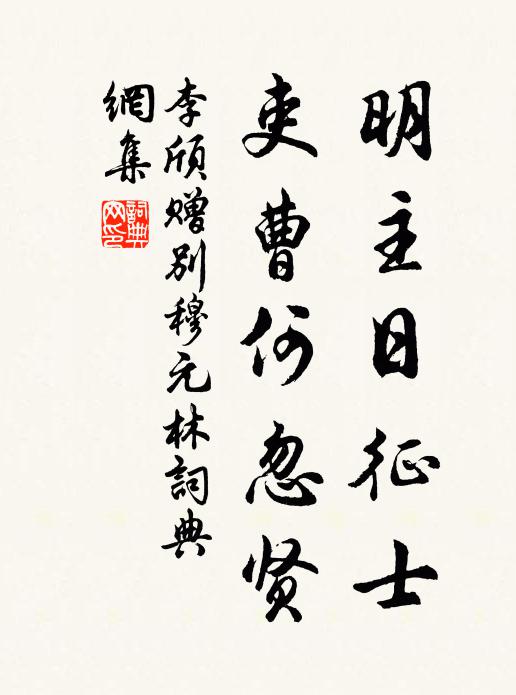 明主日征士
吏曹何忽贤
李頎赠别穆元林詞典
網集
詞典网印